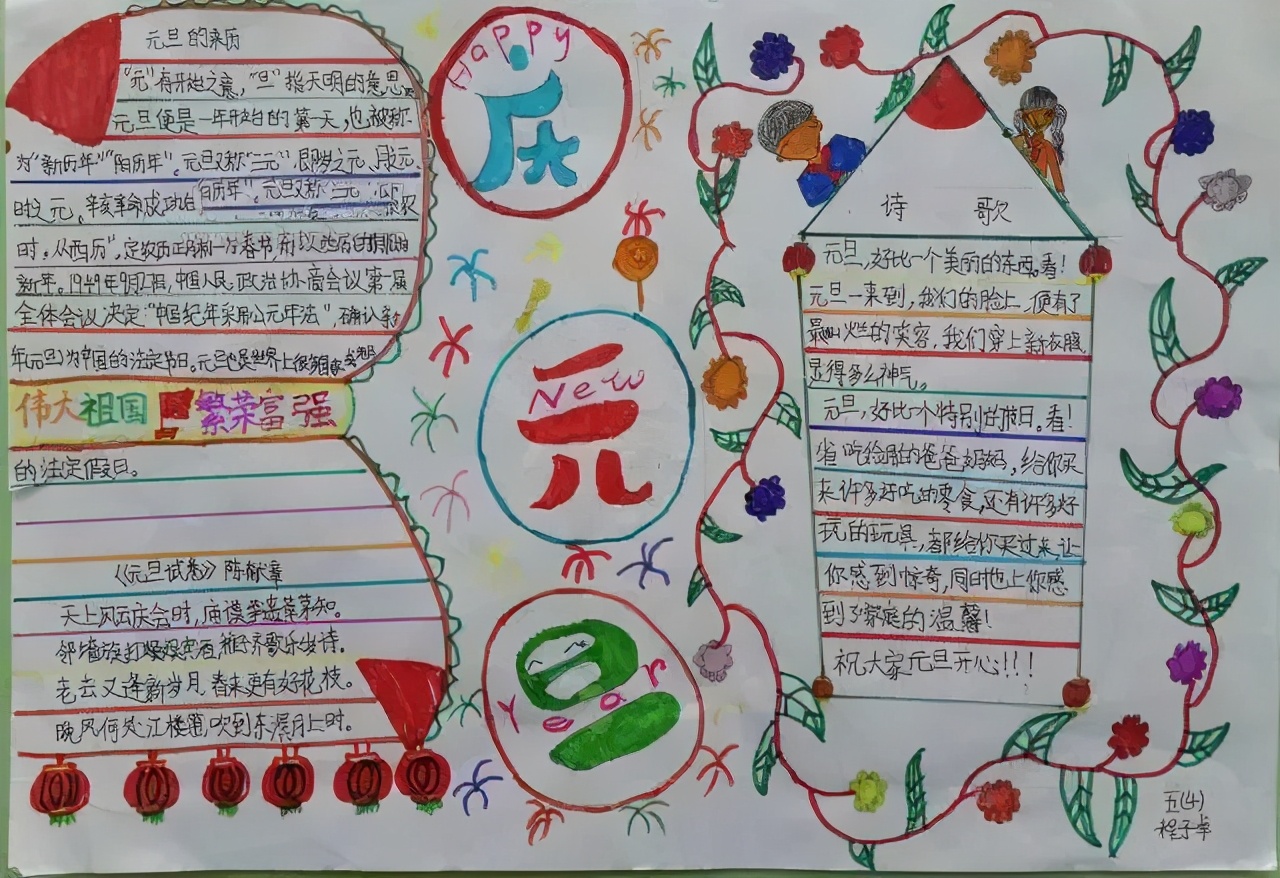 元旦的来历
"元"有开始之意，"旦"指天明的意思。
元旦便是一年开始的第一天，也被称
为"新历年""阳历年"。元旦又称"三元"，即岁之元、月之元、
时之元。辛亥革命成功后
历年"。元旦又称"三元"，即
时。从西历"，定农历正月初一为春节，所以
新年。1949年9月27日，中国人民政治协商会议第一届
全体会议决定："中国纪年采用公元年法"，确认新
年元旦为中国的法定节日。元旦也是世界上很多国家
伟大祖国 繁荣富强
的法定假日。
《元旦试卷》陈献章
天上风云庆会时，庙谟争遗草茅知。
邻墙旋打娱宾酒，稚子齐歌乐岁诗。
老去又逢新岁月，春来更有好花枝。
晚风何处江楼笛，吹到东溟月上时。
Happy
庆
元
New
旦
Year
诗 歌
元旦，好比一个美丽的东西。看！
元旦一来到，我们的脸上，便有了
最灿烂的笑容，我们穿上新衣服，
显得多么神气。
元旦，好比一个特别的假日。看！
省吃俭用的爸爸妈妈，给你买
来许多好吃的零食，还有许多好
玩的玩具，都给你买过来，让
你感到惊奇，同时也上你感
到了家庭的温馨！
祝大家元旦开心！！！
五(4)
程子卓